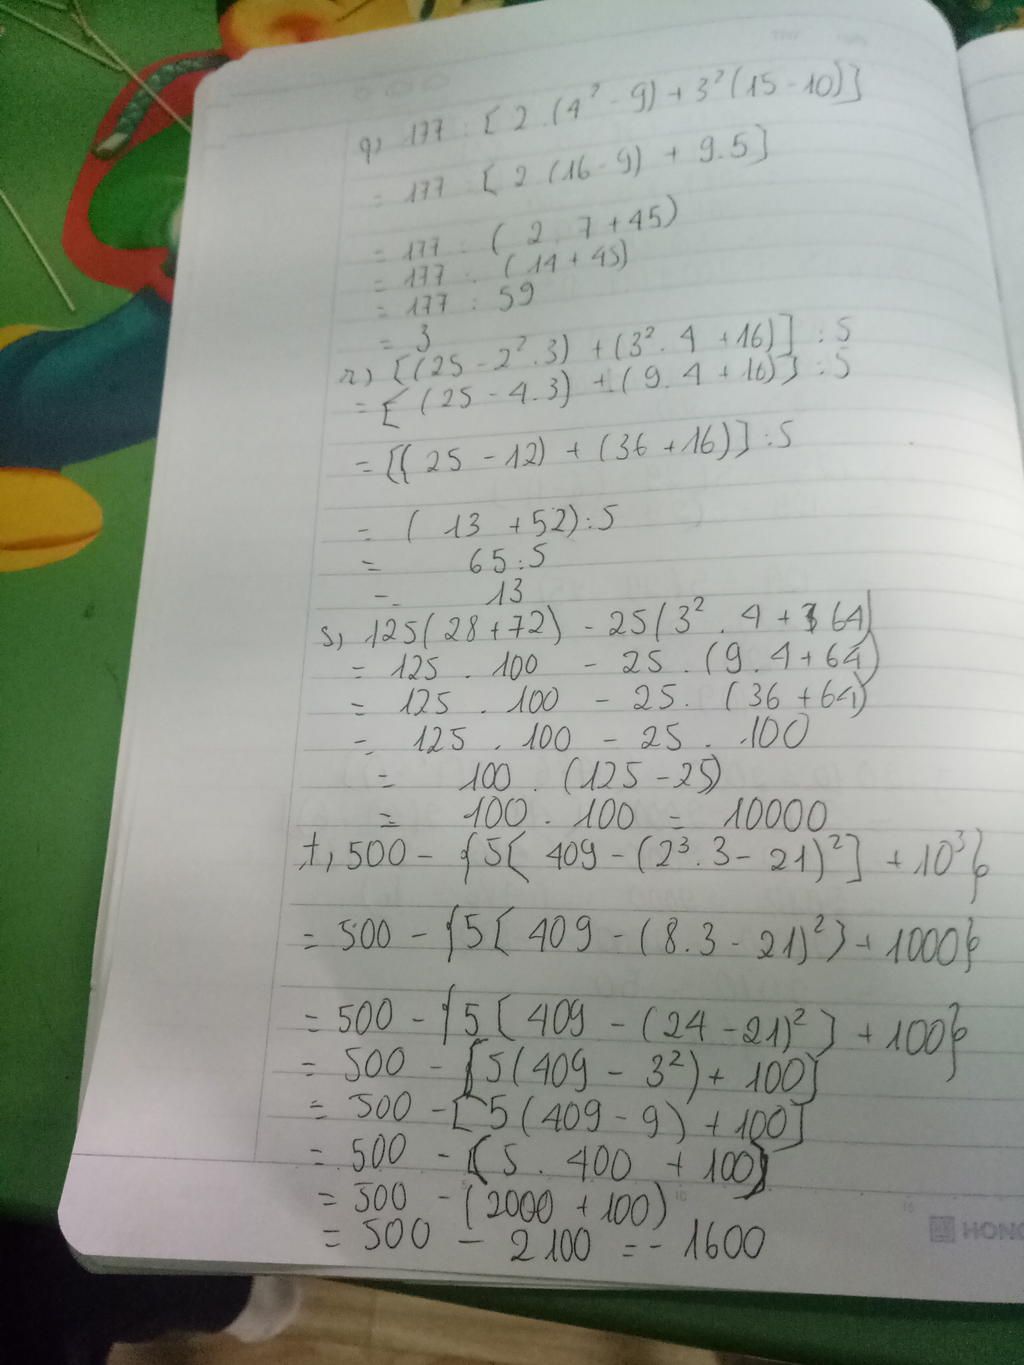 q) 177 : [2 . (4² - 9) + 3² (15 - 10)]
= 177 : [2 (16 - 9) + 9.5]
= 177 : (2 . 7 + 45)
= 177 : (14 + 45)
= 177 : 59
= 3
r) [(25 - 2² . 3) + (3² . 4 + 16)] : 5
= [(25 - 4.3) + (9.4 + 16)] : 5
= [(25 - 12) + (36 + 16)] : 5
= (13 + 52) : 5
= 65 : 5
= 13
s, 125 (28 + 72) - 25 (3² . 4 + 64)
= 125 . 100 - 25 . (9.4 + 64)
= 125 . 100 - 25 . (36 + 64)
= 125 . 100 - 25 . 100
= 100 . (125 - 25)
= 100 . 100 = 10000
t, 500 - {5[409 - (2³ . 3 - 21)²] + 10³}
= 500 - {5[409 - (8.3 - 21)²] + 1000}
= 500 - {5[409 - (24 - 21)²] + 100}
= 500 - [5(409 - 3²) + 100]
= 500 - [5(409 - 9) + 100]
= 500 - (5 . 400 + 100)
= 500 - (2000 + 100)
= 500 - 2100 = - 1600
HONG